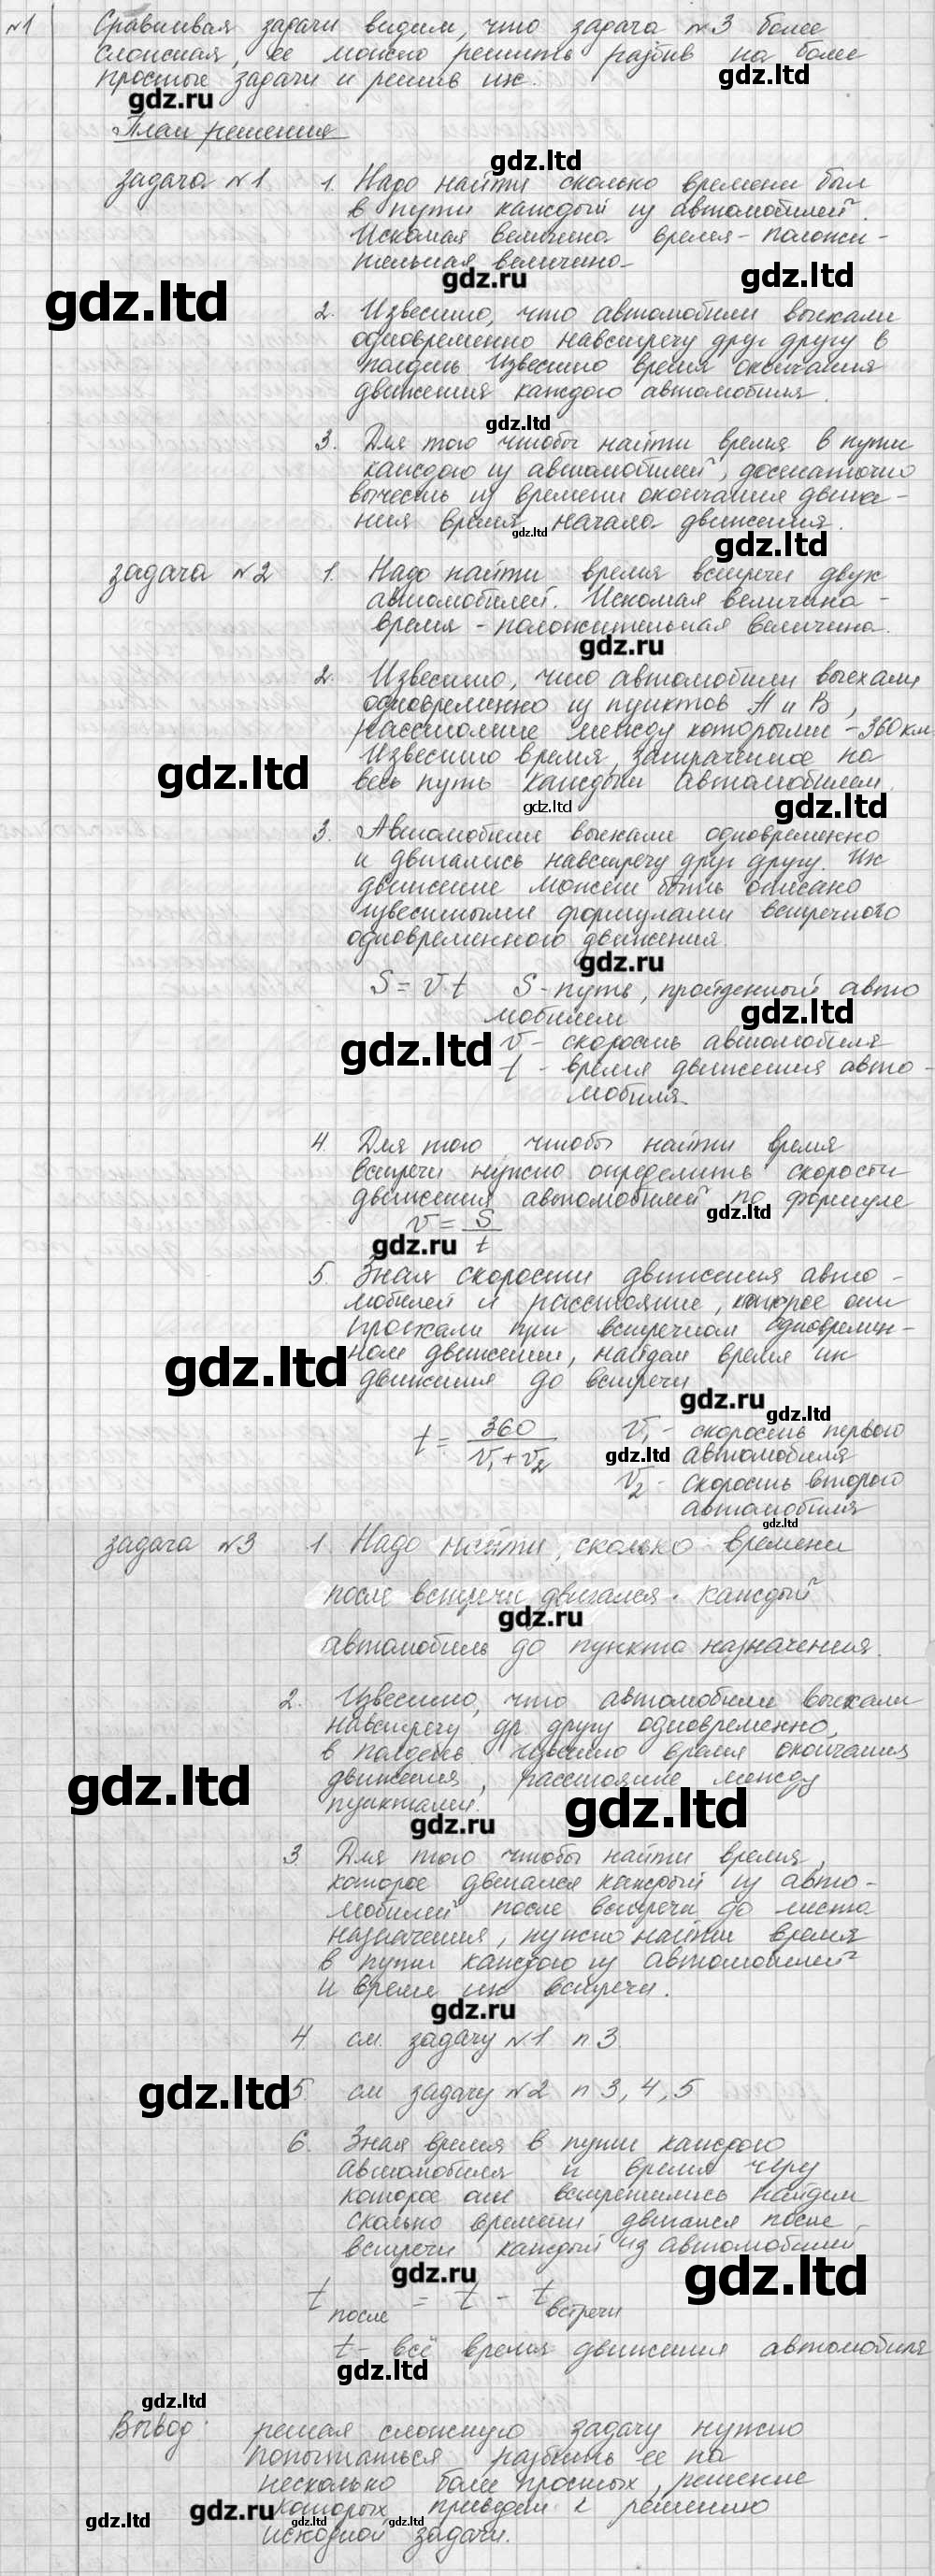 №1 Сравнивая задачи видим, что задача №3 более
сложная, ее можно решить разбив на более
простые задачи и решив их.
gdz.ltd
gdz.ru
План решения
gdz.ltd
задача №1 1. Надо найти сколько времени был
в пути каждый из автомобилей.
Искомая величина время - положи-
тельная величина
gdz.ru
gdz.ltd
gdz.ltd
2. Известно, что автомобили выехали
одновременно навстречу друг другу в
полдень. Известно время окончания
движения каждого автомобиля.
gdz.ltd
3. Для того чтобы найти время в пути
каждого из автомобилей, достаточно
вычесть из времени окончания движе-
ния время начала движения.
gdz.ltd
gdz.ltd
задача №2 1. Надо найти время встречи двух
автомобилей. Искомая величина -
время - положительная величина.
gdz.ru
2. Известно, что автомобили выехали
одновременно из пунктов А и В,
расстояние между которыми - 360 км
Известно время, затраченное на
весь путь каждым автомобилем.
gdz.ltd
gdz.ltd
gdz.ltd
3. Автомобили выехали одновременно
и двигались навстречу друг другу. Их
движение может быть описано
известными формулами встречного
одновременного движения.
gdz.ru
S = v t S - путь, пройденный авто
мобилем
gdz.ltd
v - скорость автомобиля
gdz.ltd
t - время движения авто-
мобиля.
4. Для того, чтобы найти время
встречи нужно определить скорости
движения автомобилей по формуле
gdz.ltd
v = S/t
gdz.ru
5. Зная скорости движения авто-
мобилей и расстояние, которое они
проехали при встречном одновремен-
ном движении, найдем время их
движения до встречи
gdz.ltd
gdz.ru
gdz.ltd
t = 360/(v₁ + v₂) v₁ - скорость первого
автомобиля
gdz.ltd
v₂ - скорость второго
автомобиля
gdz.ltd
задача №3 1. Надо найти, сколько времени
после встречи двигался каждый
gdz.ru
автомобиль до пункта назначения.
2. Известно, что автомобили выехали
навстречу др другу одновременно,
в полдень. Известно время окончания
движения, расстояние между
пунктами.
gdz.ltd
gdz.ltd
gdz.ru
3. Для того чтобы найти время,
которое двигался каждый из авто-
мобилей после встречи до места
назначения, нужно найти время
в пути каждого из автомобилей
и время их встречи.
gdz.ru
4. см. задачу №1 п 3.
gdz.ltd
5. см задачу №2 п 3, 4, 5
6. Зная время в пути каждого
автомобиля и время через
которое они встретились найдем
сколько времени двигался после
встречи каждый из автомобилей
gdz.ru
gdz.ltd
t после = t - t встречи
t - всё время движения автомобиля
gdz.ltd
gdz.ltd
Вывод: решая сложную задачу нужно
попытаться разбить ее на
несколько более простых, решение
которых приведет к решению
исходной задачи.
gdz.ltd
gdz.ru
gdz.ltd
gdz.ltd